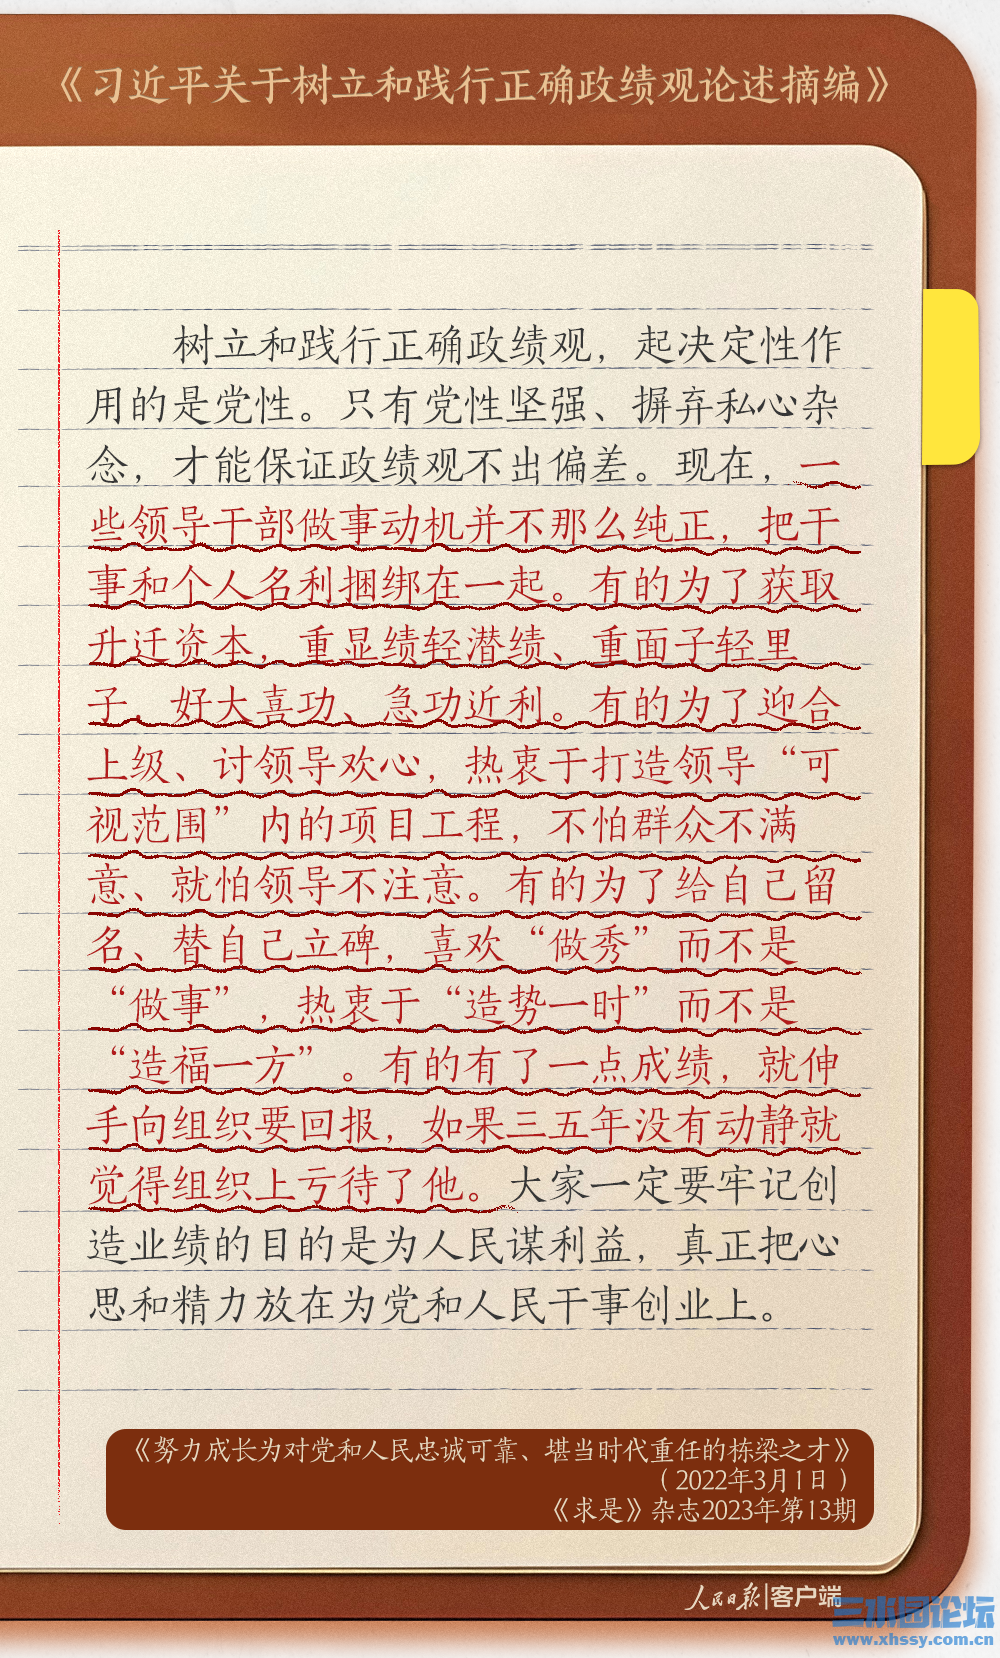 《习近平关于树立和践行正确政绩观论述摘编》
树立和践行正确政绩观，起决定性作
用的是党性。只有党性坚强、摒弃私心杂
念，才能保证政绩观不出偏差。现在，一
些领导干部做事动机并不那么纯正，把干
事和个人名利捆绑在一起。有的为了获取
升迁资本，重显绩轻潜绩、重面子轻里
子，好大喜功、急功近利。有的为了迎合
上级、讨领导欢心，热衷于打造领导“可
视范围”内的项目工程，不怕群众不满
意、就怕领导不注意。有的为了给自己留
名、替自己立碑，喜欢“做秀”而不是
“做事”，热衷于“造势一时”而不是
“造福一方”。有的有了一点成绩，就伸
手向组织要回报，如果三五年没有动静就
觉得组织上亏待了他。大家一定要牢记创
造业绩的目的是为人民谋利益，真正把心
思和精力放在为党和人民干事创业上。
《努力成长为对党和人民忠诚可靠、堪当时代重任的栋梁之才》
（2022年3月1日）
《求是》杂志2023年第13期
人民日报|客户端
三水园论坛
www.xhssy.com.cn